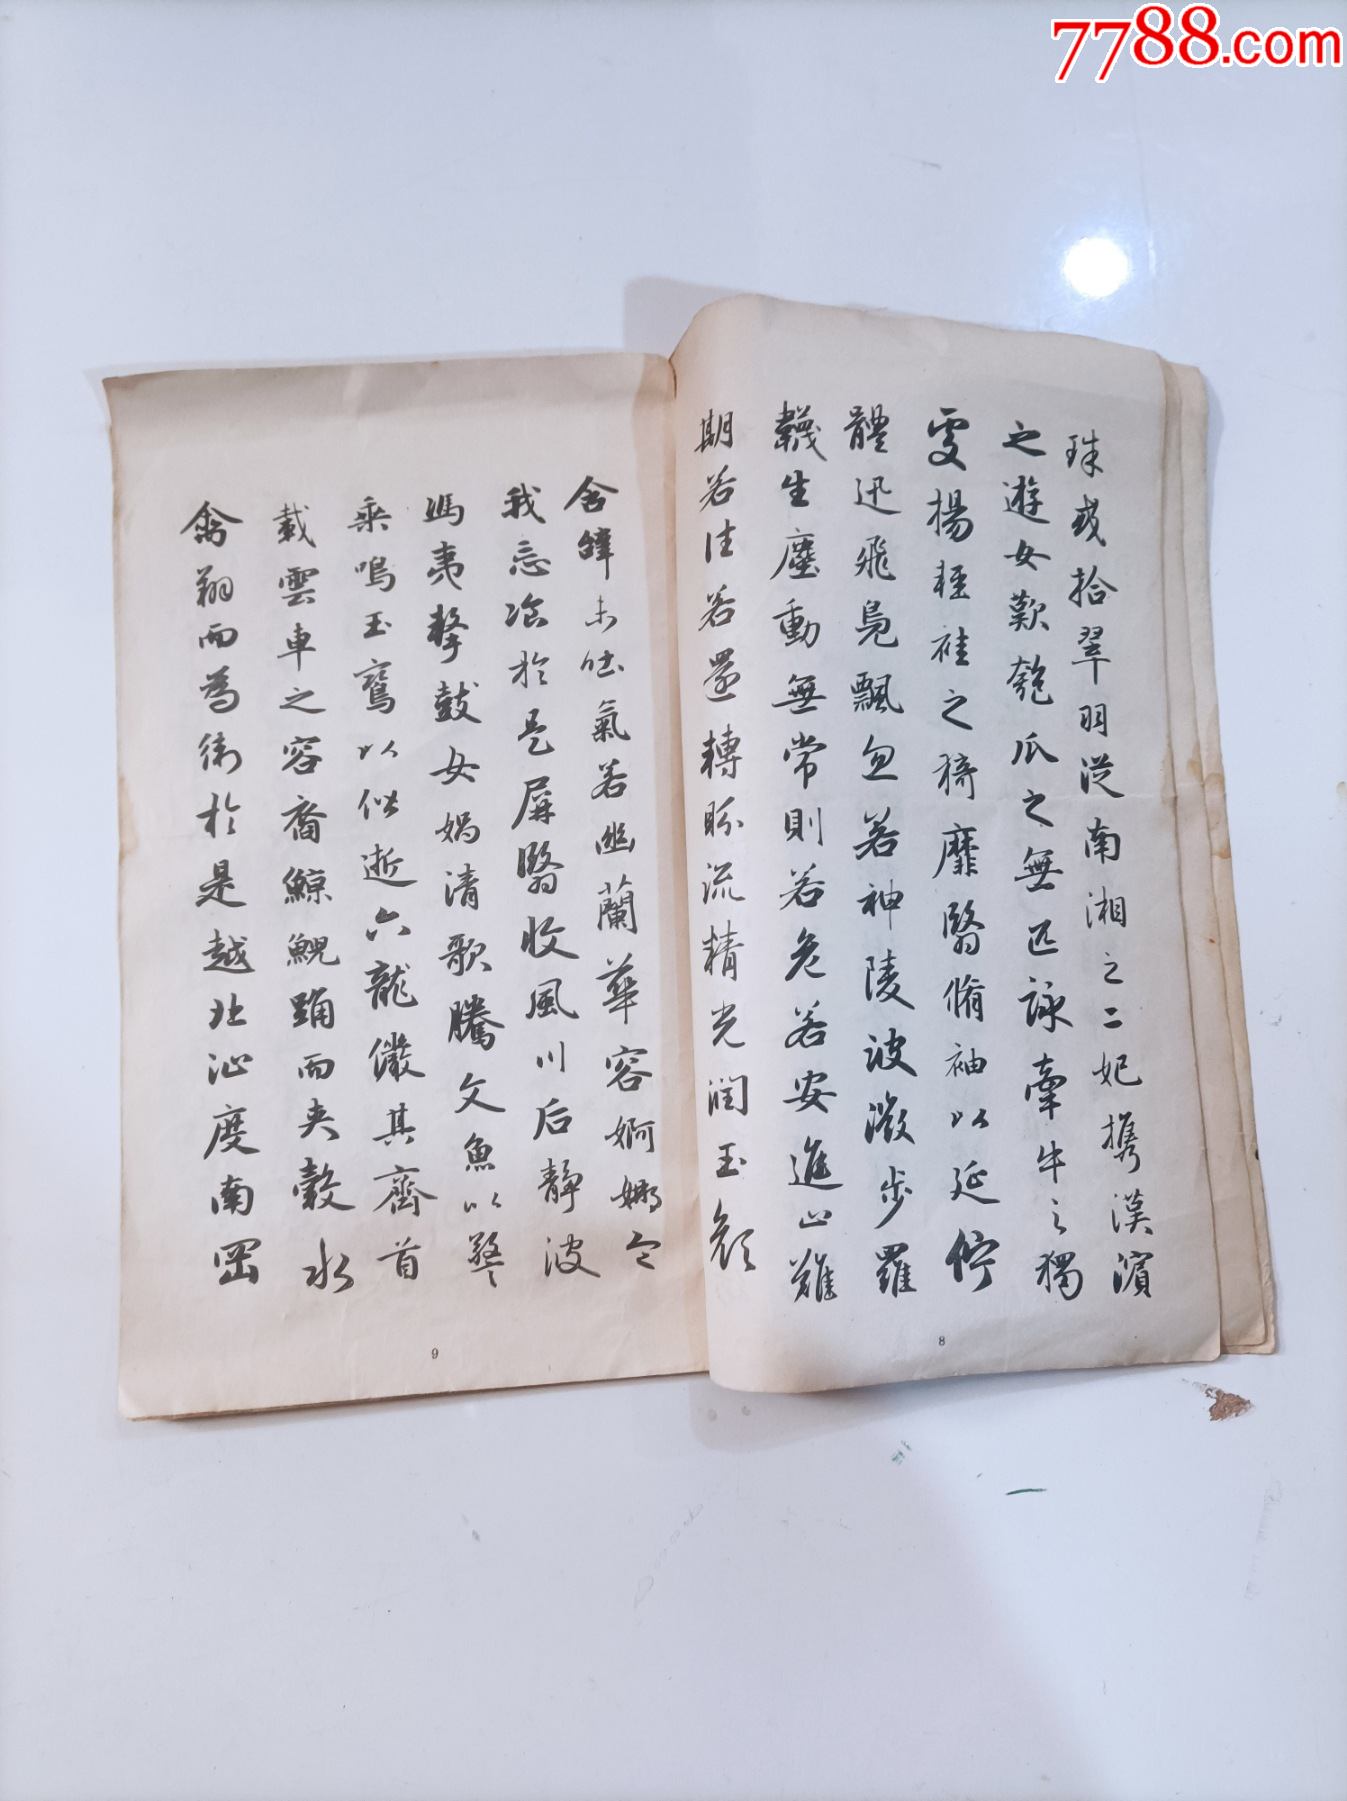 7788.com
珠或拾翠羽從南湘之二妃攜漢濱
之遊女歎匏瓜之無匹詠牽牛之獨
處揚輕袿之猗靡翳脩袖以延佇
體迅飛鳧飄忽若神陵波微步羅
韈生塵動無常則若危若安進止難
期若往若還轉眄流精光潤玉顏
8
含辭未吐氣若幽蘭華容婀娜令
我忘飡於是屏翳收風川后靜波
馮夷擊鼓女媧清歌騰文魚以警
乘鳴玉鸞以偕逝六龍儼其齊首
載雲車之容裔鯨鯢踊而夾轂水
禽翔而為衛於是越北沚度南岡
9